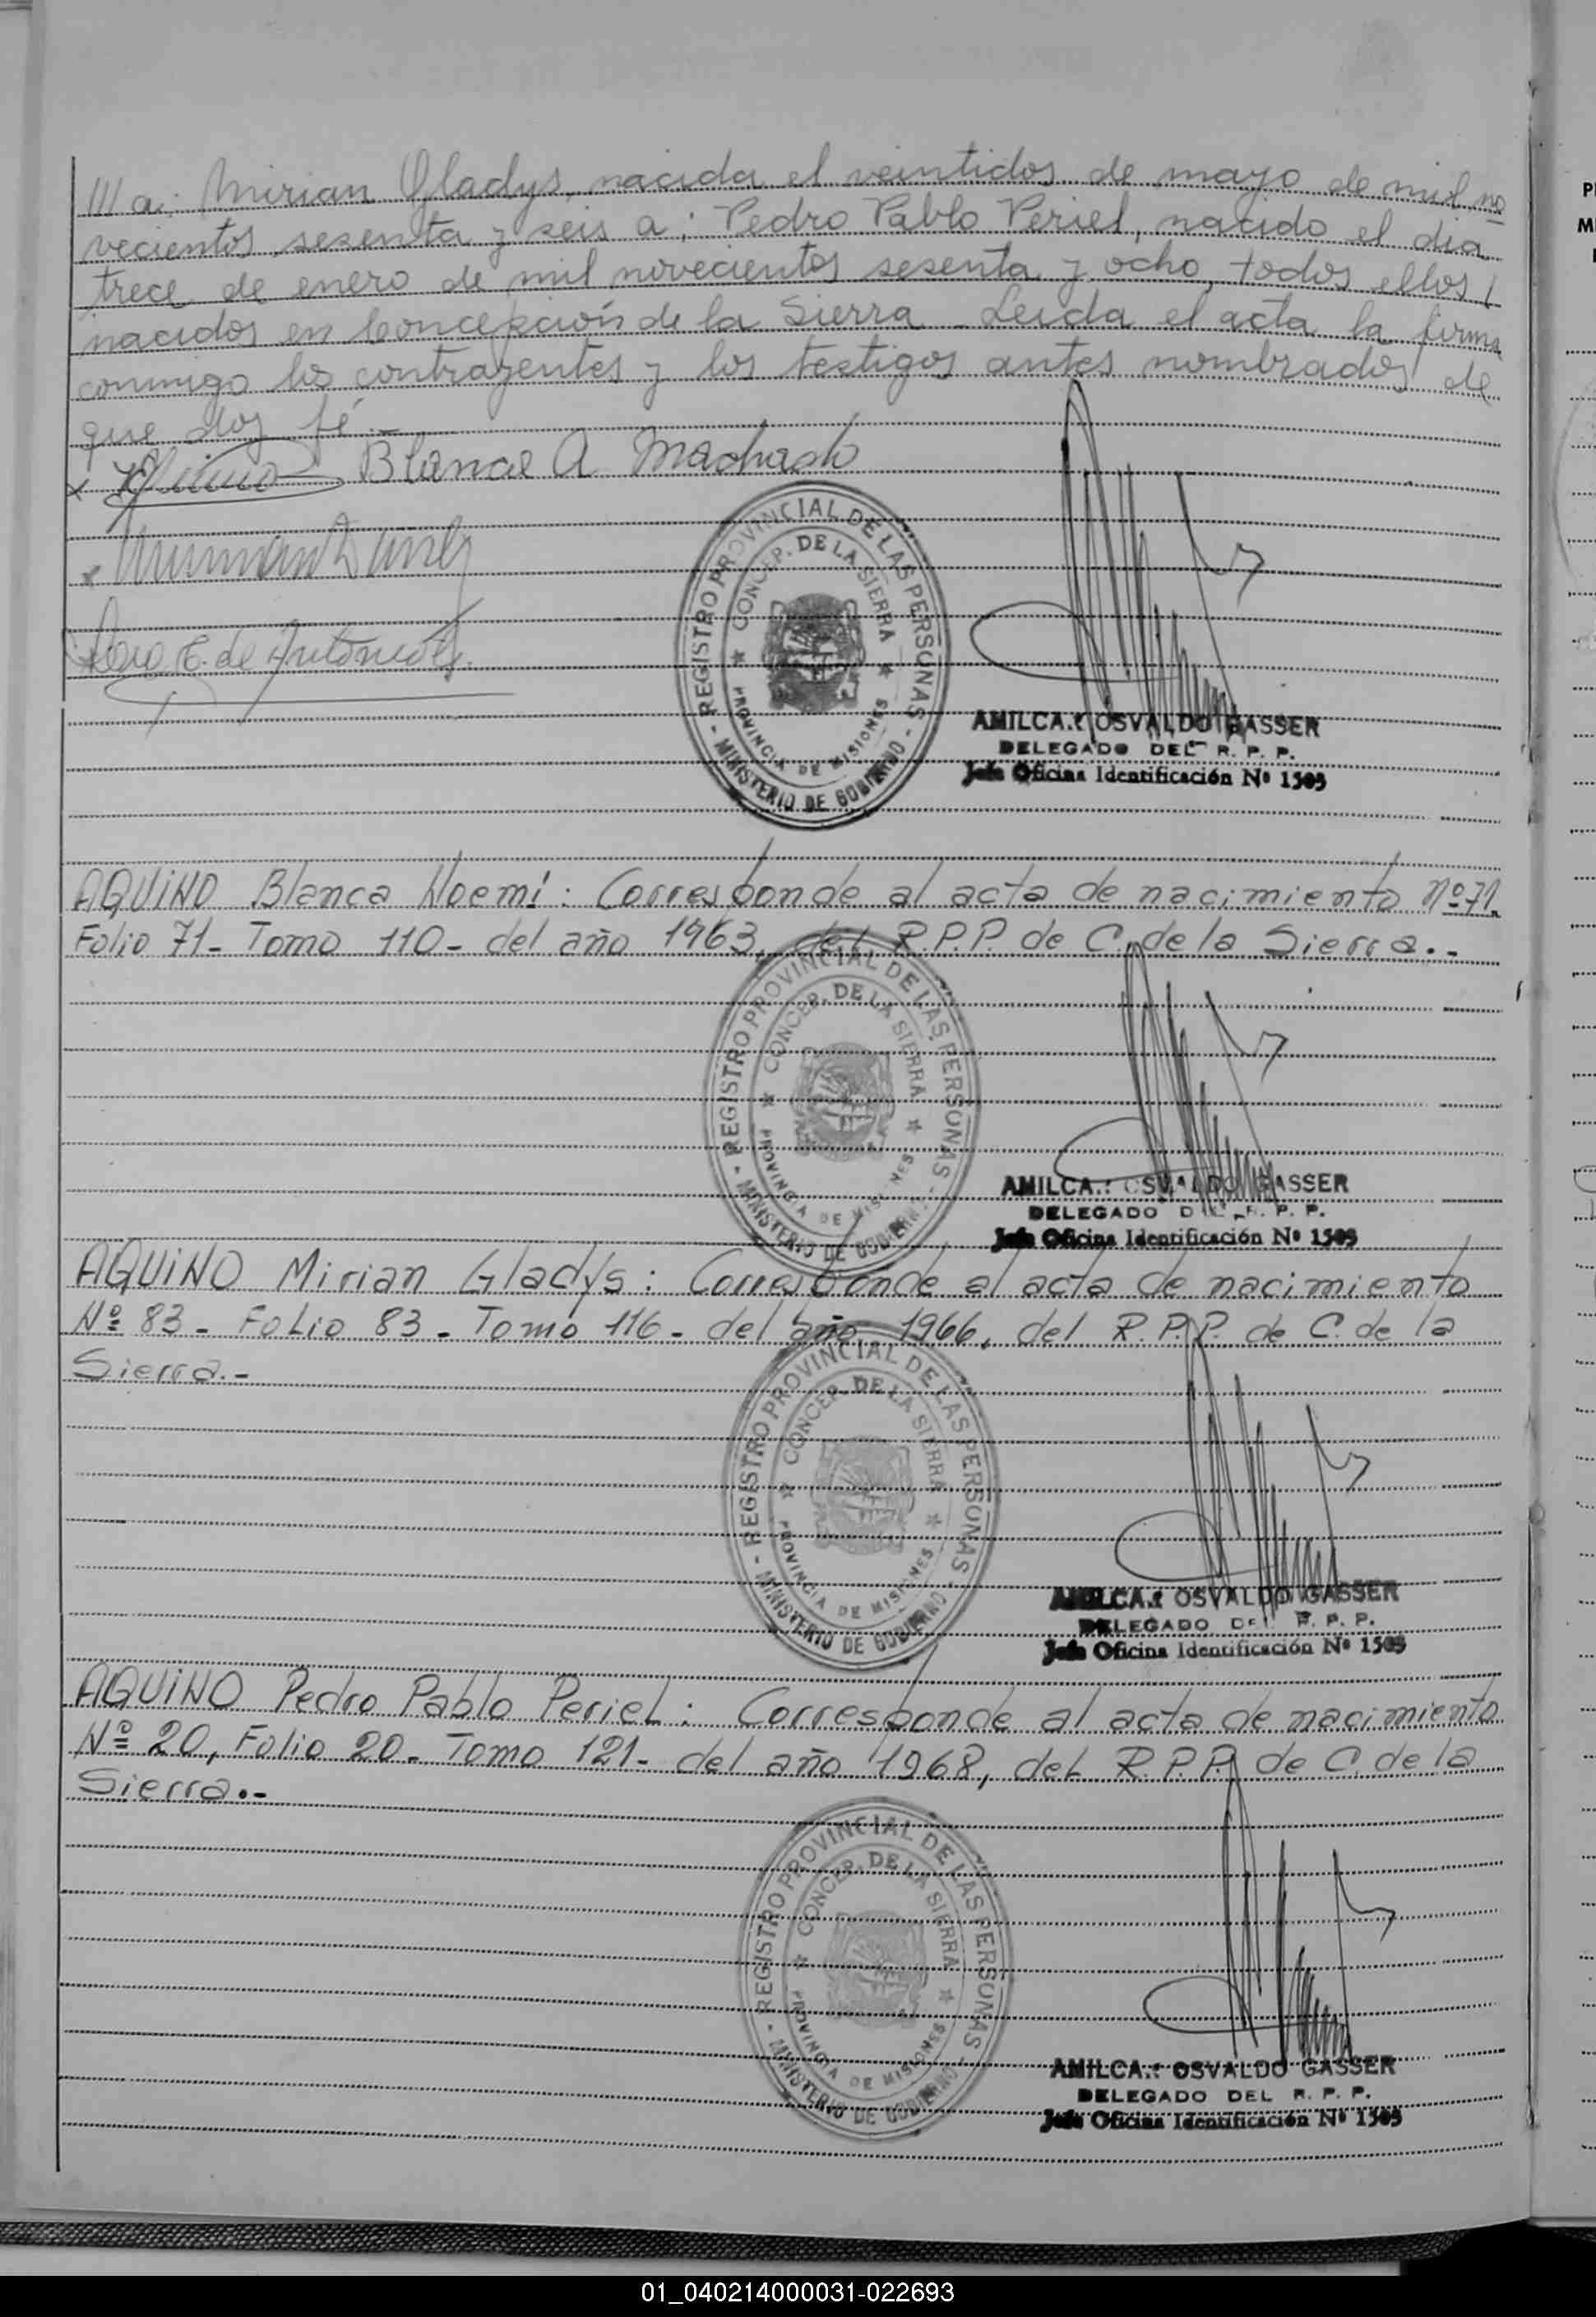 /// a; Mirian Gladys, nacida el veintidos de mayo de mil no
vecientos sesenta y seis a; Pedro Pablo Periel, nacido el dia
trece de enero de mil novecientos sesenta y ocho, todos ellos /
nacidos en Concepción de la Sierra - Leida el acta la firma
conmigo los contrayentes y los testigos antes nombrados de
que doy fé.-
Blanca A Machado
- REGISTRO PROVINCIAL DE LAS PERSONAS -
MINISTERIO DE GOBIERNO
CONCEP. DE LA SIERRA
PROVINCIA DE MISIONES
AMILCAR OSVALDO GASSER
DELEGADO DEL R. P. P.
Jefe Oficina Identificación Nº 1505
AQUiNO Blanca Noemí: Corresponde al acta de nacimiento Nº 71.
Folio 71- Tomo 110- del año 1963, del R.P.P. de C. de la Sierra.-
- REGISTRO PROVINCIAL DE LAS PERSONAS -
MINISTERIO DE GOBIERNO
CONCEP. DE LA SIERRA
PROVINCIA DE MISIONES
AMILCAR OSVALDO GASSER
DELEGADO DEL R. P. P.
Jefe Oficina Identificación Nº 1505
AQUiNO Mirian Gladys: Corresponde al acta de nacimiento
Nº 83 - Folio 83 - Tomo 116 - del año 1966, del R.P.P. de C. de la
Sierra.-
- REGISTRO PROVINCIAL DE LAS PERSONAS -
MINISTERIO DE GOBIERNO
CONCEP. DE LA SIERRA
PROVINCIA DE MISIONES
AMILCAR OSVALDO GASSER
DELEGADO DEL R. P. P.
Jefe Oficina Identificación Nº 1505
AQUiNO Pedro Pablo Periel: Corresponde al acta de nacimiento
Nº 20, Folio 20- Tomo 121- del año 1968, del R.P.P. de C. de la
Sierra.-
- REGISTRO PROVINCIAL DE LAS PERSONAS -
MINISTERIO DE GOBIERNO
CONCEP. DE LA SIERRA
PROVINCIA DE MISIONES
AMILCAR OSVALDO GASSER
DELEGADO DEL R. P. P.
Jefe Oficina Identificación Nº 1505
01_040214000031-022693